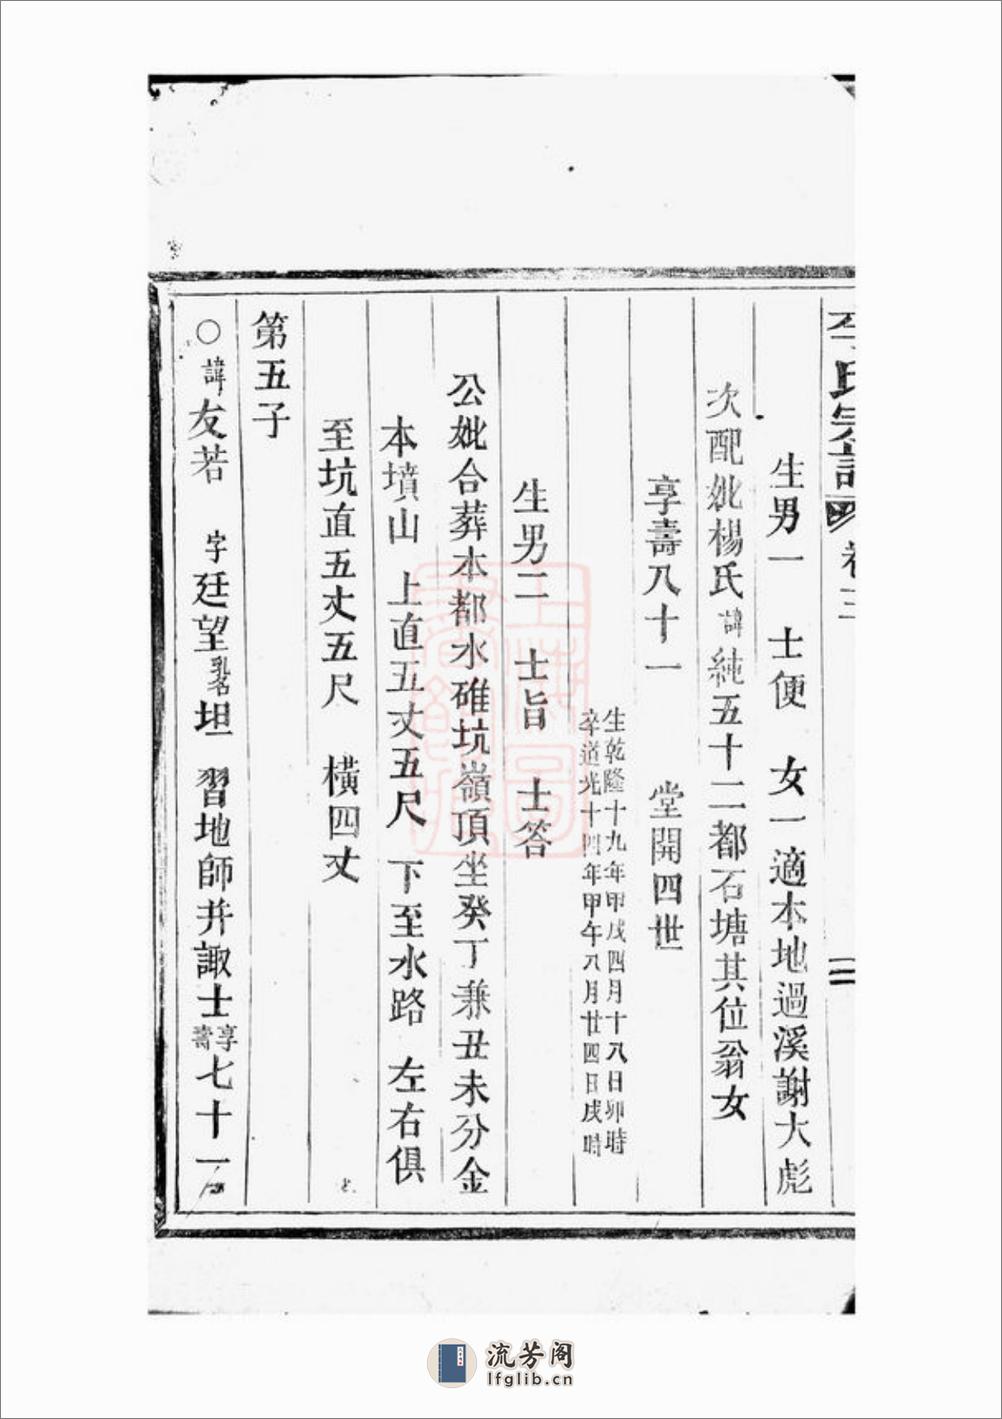 李氏宗譜 卷三 二
生男一 士便 女一適本地過溪謝大彪
次配妣楊氏諱純五十二都石塘其位翁女
享壽八十一 堂開四世
生乾隆十九年甲戌四月十八日卯時
卒道光十四年甲午八月廿四日戌時
生男二 士旨 士答
公妣合葬本都水碓坑嶺頂坐癸丁兼丑未分金
本墳山 上直五丈五尺 下至水路 左右俱
至坑直五丈五尺 橫四丈
第五子
○諱友若 字廷望乳名坦 習地師并諏士享壽七十一
上海圖書館藏
流芳阁
lfglib.cn